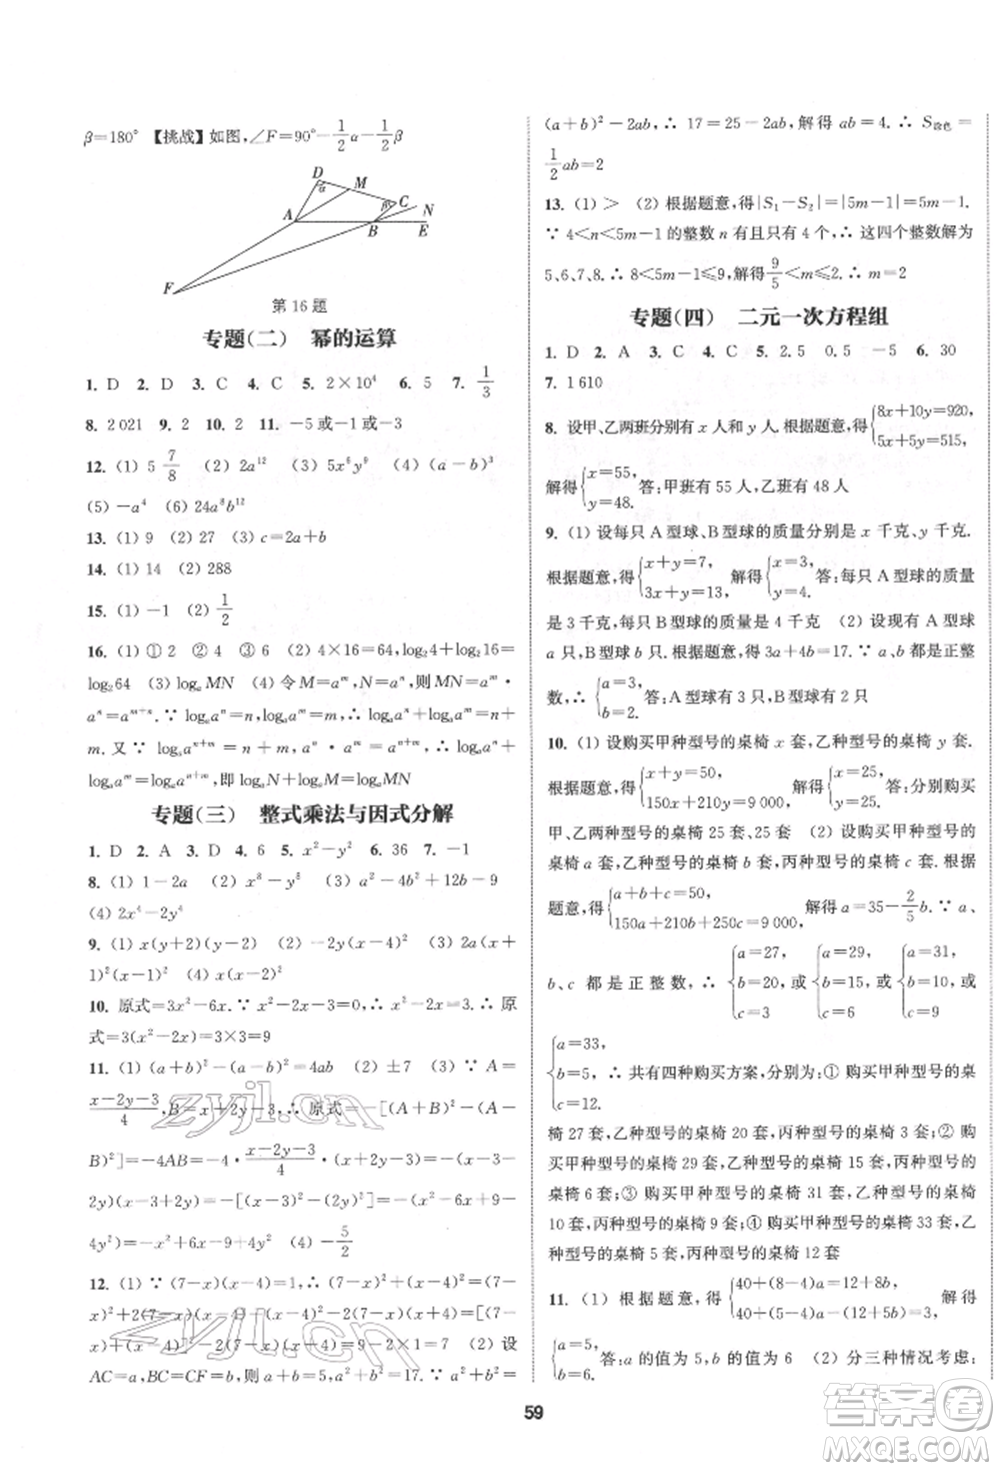 β=180° 【挑战】如图,∠F=90°-1/2α-1/2β
D M α β C N A B E F
第16题
专题(二) 幂的运算
1. D 2. D 3. C 4. C 5. 2×10⁴ 6. 5 7. 1/3
8. 2 021 9. 2 10. 2 11. -5或-1或-3
12. (1) 5 7/8 (2) 2a¹² (3) 5x⁶y⁹ (4) (a-b)³
(5) -a⁴ (6) 24a⁸b¹²
13. (1) 9 (2) 27 (3) c=2a+b
14. (1) 14 (2) 288
15. (1) -1 (2) 1/2
16. (1) ① 2 ② 4 ③ 6 (2) 4×16=64,log₂4+log₂16=
log₂64 (3) logₐMN (4) 令 M=aᵐ,N=aⁿ,则 MN=aᵐ·
aⁿ=aᵐ⁺ⁿ.∵ logₐM+logₐN=logₐaᵐ+logₐaⁿ=n+
m.又 ∵ logₐaⁿ⁺ᵐ=n+m,∴ logₐaⁿ+logₐaᵐ=
logₐaⁿ⁺ᵐ,即 logₐN+logₐM=logₐMN
专题(三) 整式乘法与因式分解
1. D 2. A 3. D 4. 6 5. x²-y² 6. 36 7. -1
8. (1) 1-2a (2) x⁸-y⁸ (3) a²-4b²+12b-9
(4) 2x⁴-2y⁴
9. (1) x(y+2)(y-2) (2) (x-y)⁴ (3) 2a(x+
1)²(x-1)² (4) (x-y)²(x+y)
10. 原式=3x²-6x.∵ x²-2x-3=0,∴ x²-2x=3.∴ 原
式=3(x²-2x)=3×3=9
11. (1) (a+b)²-(a-b)²=4ab (2) ±7 (3) ∵ A=
(x-2y-3)/4,B=x+2y+3,∴ 原式=-[(A+B)²-(A-
B)²]=-4AB=-4·(x-2y-3)/4·(x+2y+3)=-(x-2y-
3)(x+2y+3)=-[x-(2y+3)][x+(2y+3)]=-[x²-(2y+3)²]
4y²)=-x²+4y²+12y+9 (4) -5/2
12. (1) ∵ (7-x)(x-4)=1,∴ (7-x)²+(x-4)²=
(a+b)²-2ab,∴ 17=25-2ab,解得 ab=4.∴ S涂色=
1/2ab=2
13. (1) > (2) 根据题意,得|S₁-S₂|=|5m-1|=5m-1.
∵ 4<n<5m-1的整数 n 有且只有 4 个,∴ 这四个整数解为
5、6、7、8.∴ 8<5m-1≤9,解得9/5<m≤2.∴ m=2
专题(四) 二元一次方程组
1. D 2. A 3. C 4. C 5. 2.5 0.5 -5 6. 30
7. 1 610
8. 设甲、乙两班分别有 x 人和 y 人.根据题意,得{8x+10y=920, 5x+5y=515,
解得{x=55, y=48.答:甲班有 55 人,乙班有 48 人
9. (1) 设每只 A 型球、B 型球的质量分别是 x 千克、y 千克.
根据题意,得{x+y=7, 3x+y=13,解得{x=3, y=4.答:每只 A 型球的质量
是 3 千克,每只 B 型球的质量为 4 千克 (2) 设现有 A 型球
a 只、B 型球 b 只.根据题意,得 3a+4b=17.∵ a、b 为正整
数,∴ {a=3, b=2.答:A 型球有 3 只,B 型球有 2 只
10. (1) 设购买甲种型号的桌椅 x 套,乙种型号的桌椅 y 套.
根据题意,得{x+y=50, 150x+210y=9 000,解得{x=25, y=25.答:分别购买
甲、乙两种型号的桌椅 25 套、25 套 (2) 设购买甲种型号的
桌椅 a 套,乙种型号的桌椅 b 套,丙种型号的桌椅 c 套.根据
题意,得{a+b+c=50, 150a+210b+250c=9 000,解得 a=35-2/5b.∵ a、
b、c 都是正整数,∴ {a=27, b=20, c=3 或{a=29, b=15, c=6 或{a=31, b=10, c=9 或
{a=33, b=5, c=12.∴ 共有四种购买方案,分别是:① 购买甲种型号的桌
椅 27 套,乙种型号的桌椅 20 套,丙种型号的桌椅 3 套;② 购
买甲种型号的桌椅 29 套,乙种型号的桌椅 15 套,丙种型号的
桌椅 6 套;③ 购买甲种型号的桌椅 31 套,乙种型号的桌椅
10 套,丙种型号的桌椅 9 套;④ 购买甲种型号的桌椅 33 套,乙
种型号的桌椅 5 套,丙种型号的桌椅 12 套
11. (1) 根据题意,得{40+(8-4)a=12+8b, 40+(5-4)a-(12+5b)=3,解得
{a=5, b=6.答:a 的值为 5,b 的值为 6 (2) 分三种情况考虑:
59
zyjl.cn
zyjl.cn
答案卷
MXQE.COM